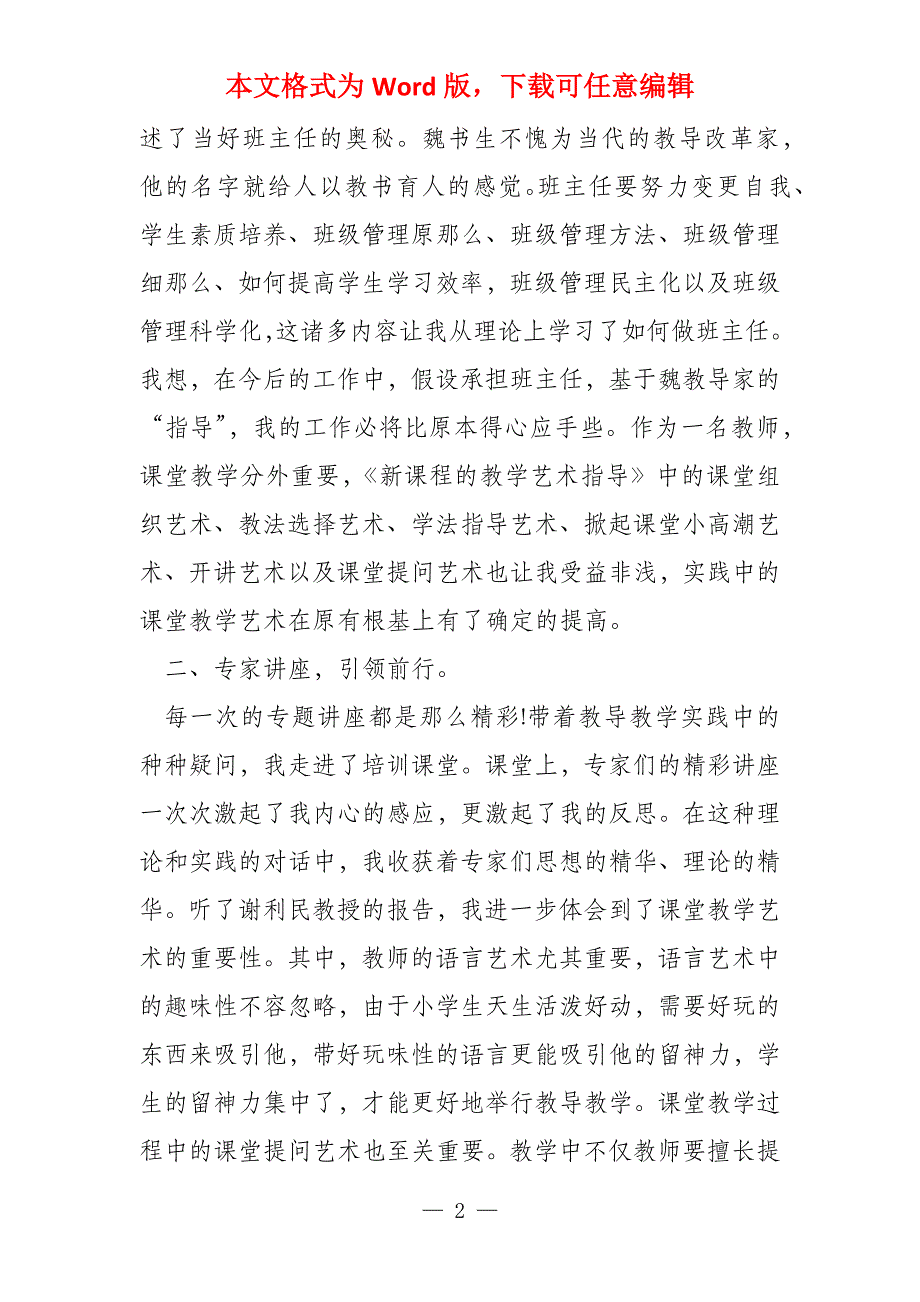 本文格式为 Word 版，下载可任意编辑
述了当好班主任的奥秘。魏书生不愧为当代的教导改革家，
他的名字就给人以教书育人的感觉。班主任要努力变更自我、
学生素质培养、班级管理原那么、班级管理方法、班级管理
细那么、如何提高学生学习效率，班级管理民主化以及班级
管理科学化,这诸多内容让我从理论上学习了如何做班主任。
我想，在今后的工作中，假设承担班主任，基于魏教导家的
“指导”，我的工作必将比原本得心应手些。作为一名教师，
课堂教学分外重要，《新课程的教学艺术指导》中的课堂组
织艺术、教法选择艺术、学法指导艺术、掀起课堂小高潮艺
术、开讲艺术以及课堂提问艺术也让我受益非浅，实践中的
课堂教学艺术在原有根基上有了确定的提高。
二、专家讲座，引领前行。
每一次的专题讲座都是那么精彩!带着教导教学实践中的
种种疑问，我走进了培训课堂。课堂上，专家们的精彩讲座
一次次激起了我内心的感应，更激起了我的反思。在这种理
论和实践的对话中，我收获着专家们思想的精华、理论的精
华。听了谢利民教授的报告，我进一步体会到了课堂教学艺
术的重要性。其中，教师的语言艺术尤其重要，语言艺术中
的趣味性不容忽略，由于小学生天生活泼好动，需要好玩的
东西来吸引他，带好玩味性的语言更能吸引他的留神力，学
生的留神力集中了，才能更好地举行教导教学。课堂教学过
程中的课堂提问艺术也至关重要。教学中不仅教师要擅长提
— 2 —